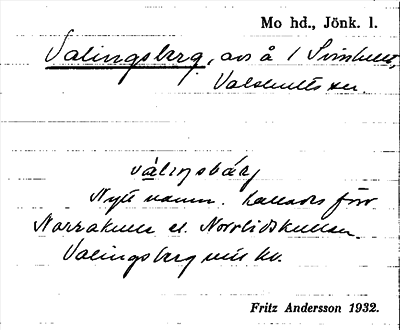 Mo hd., Jönk. l.
Valingsberg, avs å 1 Svinhult,
Valshults sn.
válıŋsbárj
Nytt namn. Kallades förr
Norrakulle el. Norrlidskullen.
Valingsberg
Fritz Andersson 1932.